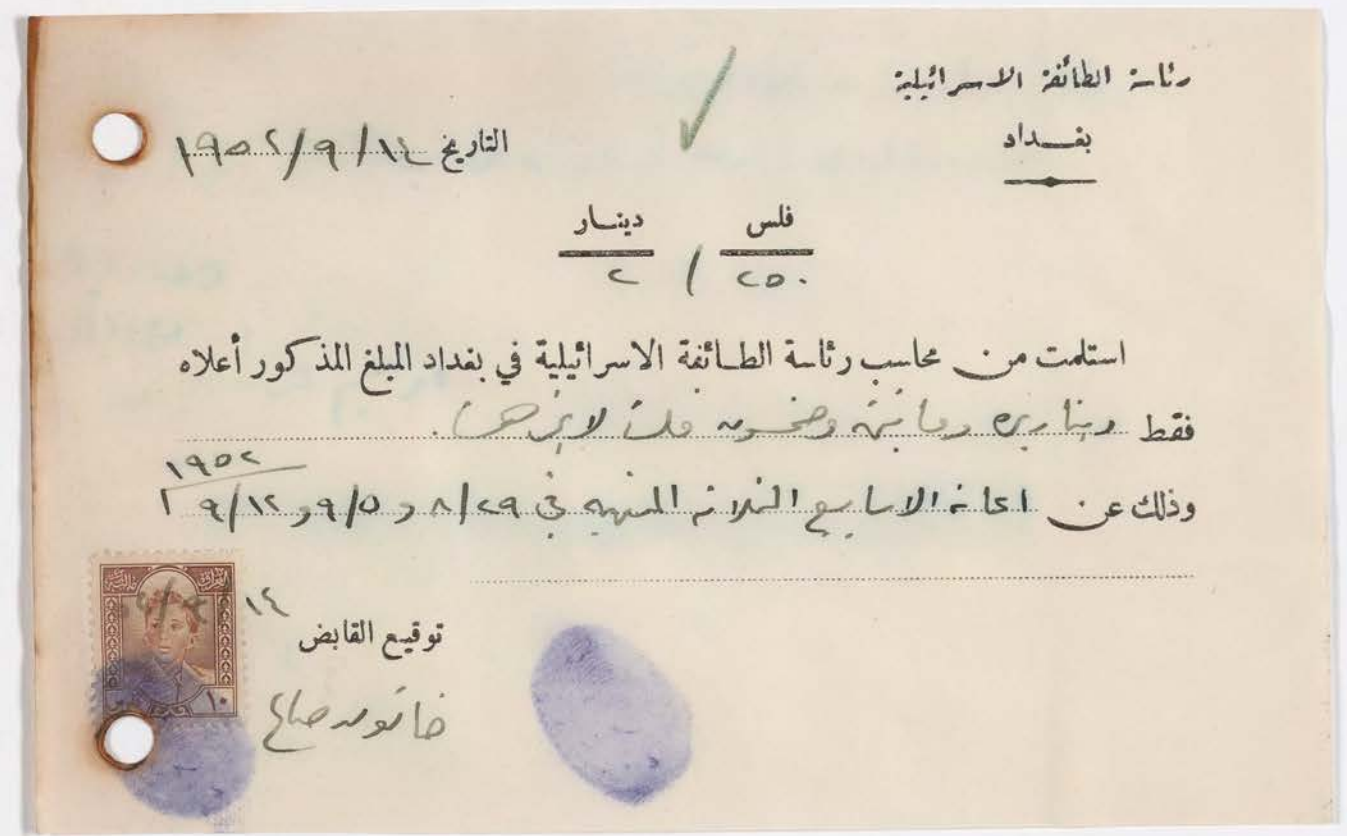 رئاسة الطائفة الاسرائيلية
بغداد
التاريخ ١٩٥٢/٩/١٤
فلس دينار
٢٥٠ / ٢
استلمت من محاسب رئاسة الطائفة الاسرائيلية في بغداد المبلغ المذكور أعلاه
فقط دينارين ومائتين وخمسون فلسا لا غير
وذلك عن اعانة الاسابيع الثلاثة المنتهية في ٨/٢٩ و ٩/٥ و ٩/١٢
١٩٥٢
توقيع القابض
١٤
خاتون صالح
١٠